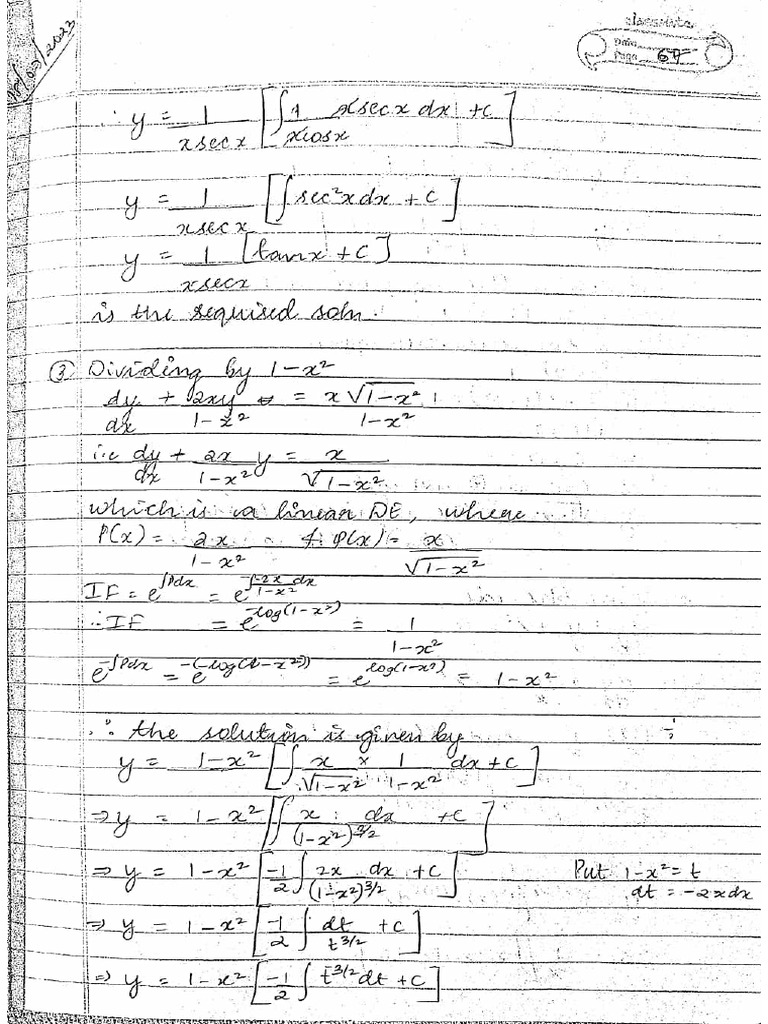 classmate
Date
Page 67
∴ y = 1/(x sec x) [∫ 1/(x cos x) x sec x dx + c]
y = 1/(x sec x) [∫ sec²x dx + c]
y = 1/(x sec x) [tan x + c]
is the required soln.
③ Dividing by 1-x²
dy/dx + 2xy/(1-x²) = x√(1-x²)/(1-x²)
i.e dy/dx + 2x/(1-x²) y = x/√(1-x²)
which is a linear DE, where
P(x) = 2x/(1-x²) & Q(x) = x/√(1-x²)
IF = e^(∫Pdx) = e^(-∫(-2x)/(1-x²) dx)
∴ IF = e^(-log(1-x²)) = 1/(1-x²)
e^(-∫Pdx) = e^(-(-log(1-x²))) = e^(log(1-x²)) = 1-x²
∴ the solution is given by
y = 1-x² [∫ x/√(1-x²) × 1/(1-x²) dx + c]
⇒ y = 1-x² [∫ x/(1-x²)^(3/2) dx + c]
⇒ y = 1-x² [-1/2 ∫ 2x/(1-x²)^(3/2) dx + c] Put 1-x² = t
dt = -2xdx
⇒ y = 1-x² [-1/2 ∫ dt/t^(3/2) + c]
⇒ y = 1-x² [-1/2 ∫ t^(-3/2) dt + c]